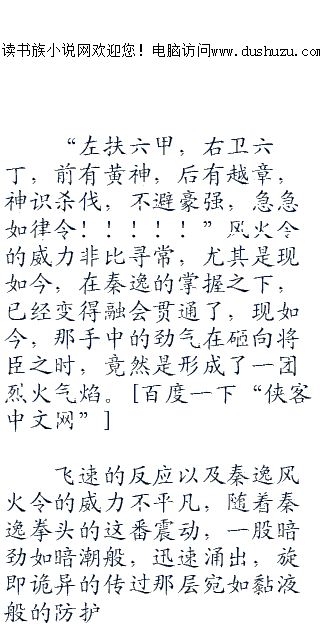 读书族小说网欢迎您！电脑访问www.dushuzu.com
“左扶六甲，右卫六
丁，前有黄神，后有越章，
神识杀伐，不避豪强，急急
如律令！！！！！”风火令
的威力非比寻常，尤其是现
如今，在秦逸的掌握之下，
已经变得融会贯通了，现如
今，那手中的劲气在砸向将
臣之时，竟然是形成了一团
烈火气焰。[百度一下“侠客
中文网”]
飞速的反应以及秦逸风
火令的威力不平凡，随着秦
逸拳头的这番震动，一股暗
劲如暗潮般，迅速涌出，旋
即诡异的传过那层宛如黏液
般的防护